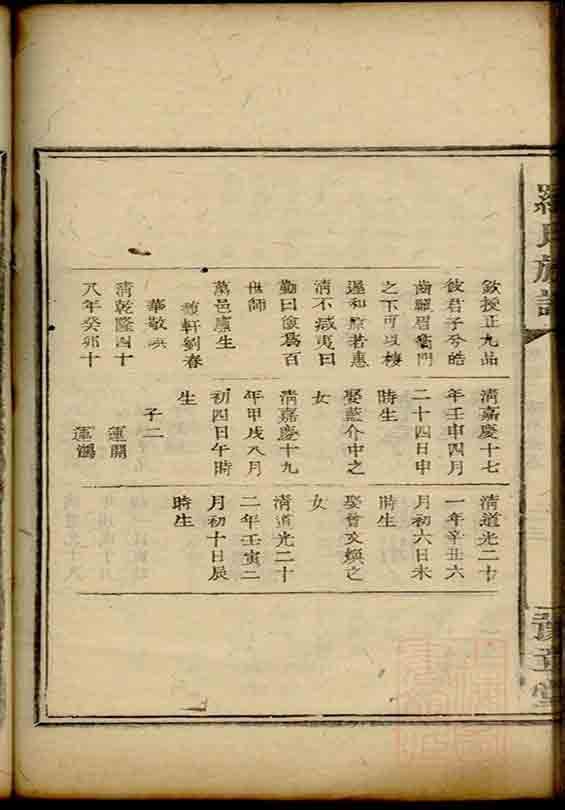 羅氏族譜
豫章堂
欽授正九品
欽君子兮皓
齒麗眉衡門
之下可以棲
遲和原若惠
清不减夷曰
勤曰儉為百
世師
萬邑廩生
馥軒劉春
華敬
清乾隆四十
八年癸卯十
清嘉慶十七
年壬申四月
二十四日申
時生
娶藍介中之
女
清嘉慶十九
年甲戌八月
初四日午時
生
子二
運開
運鴻
清道光二十
一年辛丑六
月初六日未
時生
娶曾文煥之
女
清道光二十
二年壬寅二
月初十日辰
時生